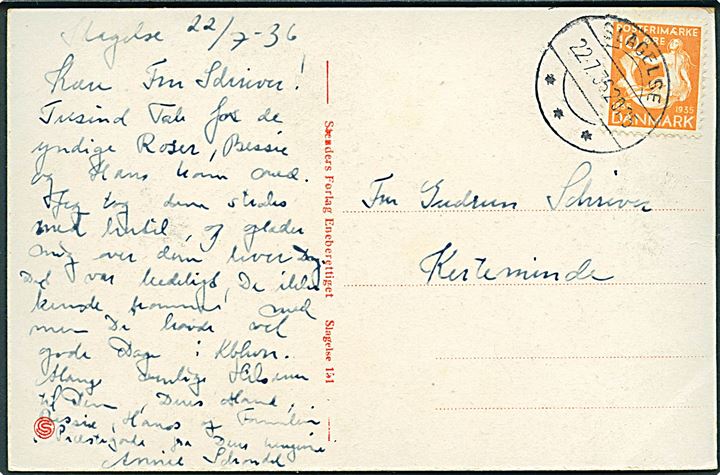 Slagelse 22/7-36
Kære Fru Schriver!
Tusind Tak for de
yndige Roser, Bessie
og Hans kom med.
Jeg tog dem straks
med hertil, og glæder
mig over dem hver Dag.
Det var kedeligt, De ikke
kunde komme med
men De havde vel
gode Dage i Kbhvn.
Mange venlige Hilsener
til Dem, Deres Mand,
Bessie, Hans og Familien
i Præstegade fra Deres hengivne
Annie
Stenders Forlag Eneberettiget Slagelse 151
Fru Gudrun Schriver
Kerteminde
POSTFRIMÆRKE
ØRE
1935
DANMARK
SLAGELSE
22.7.36.20-
S